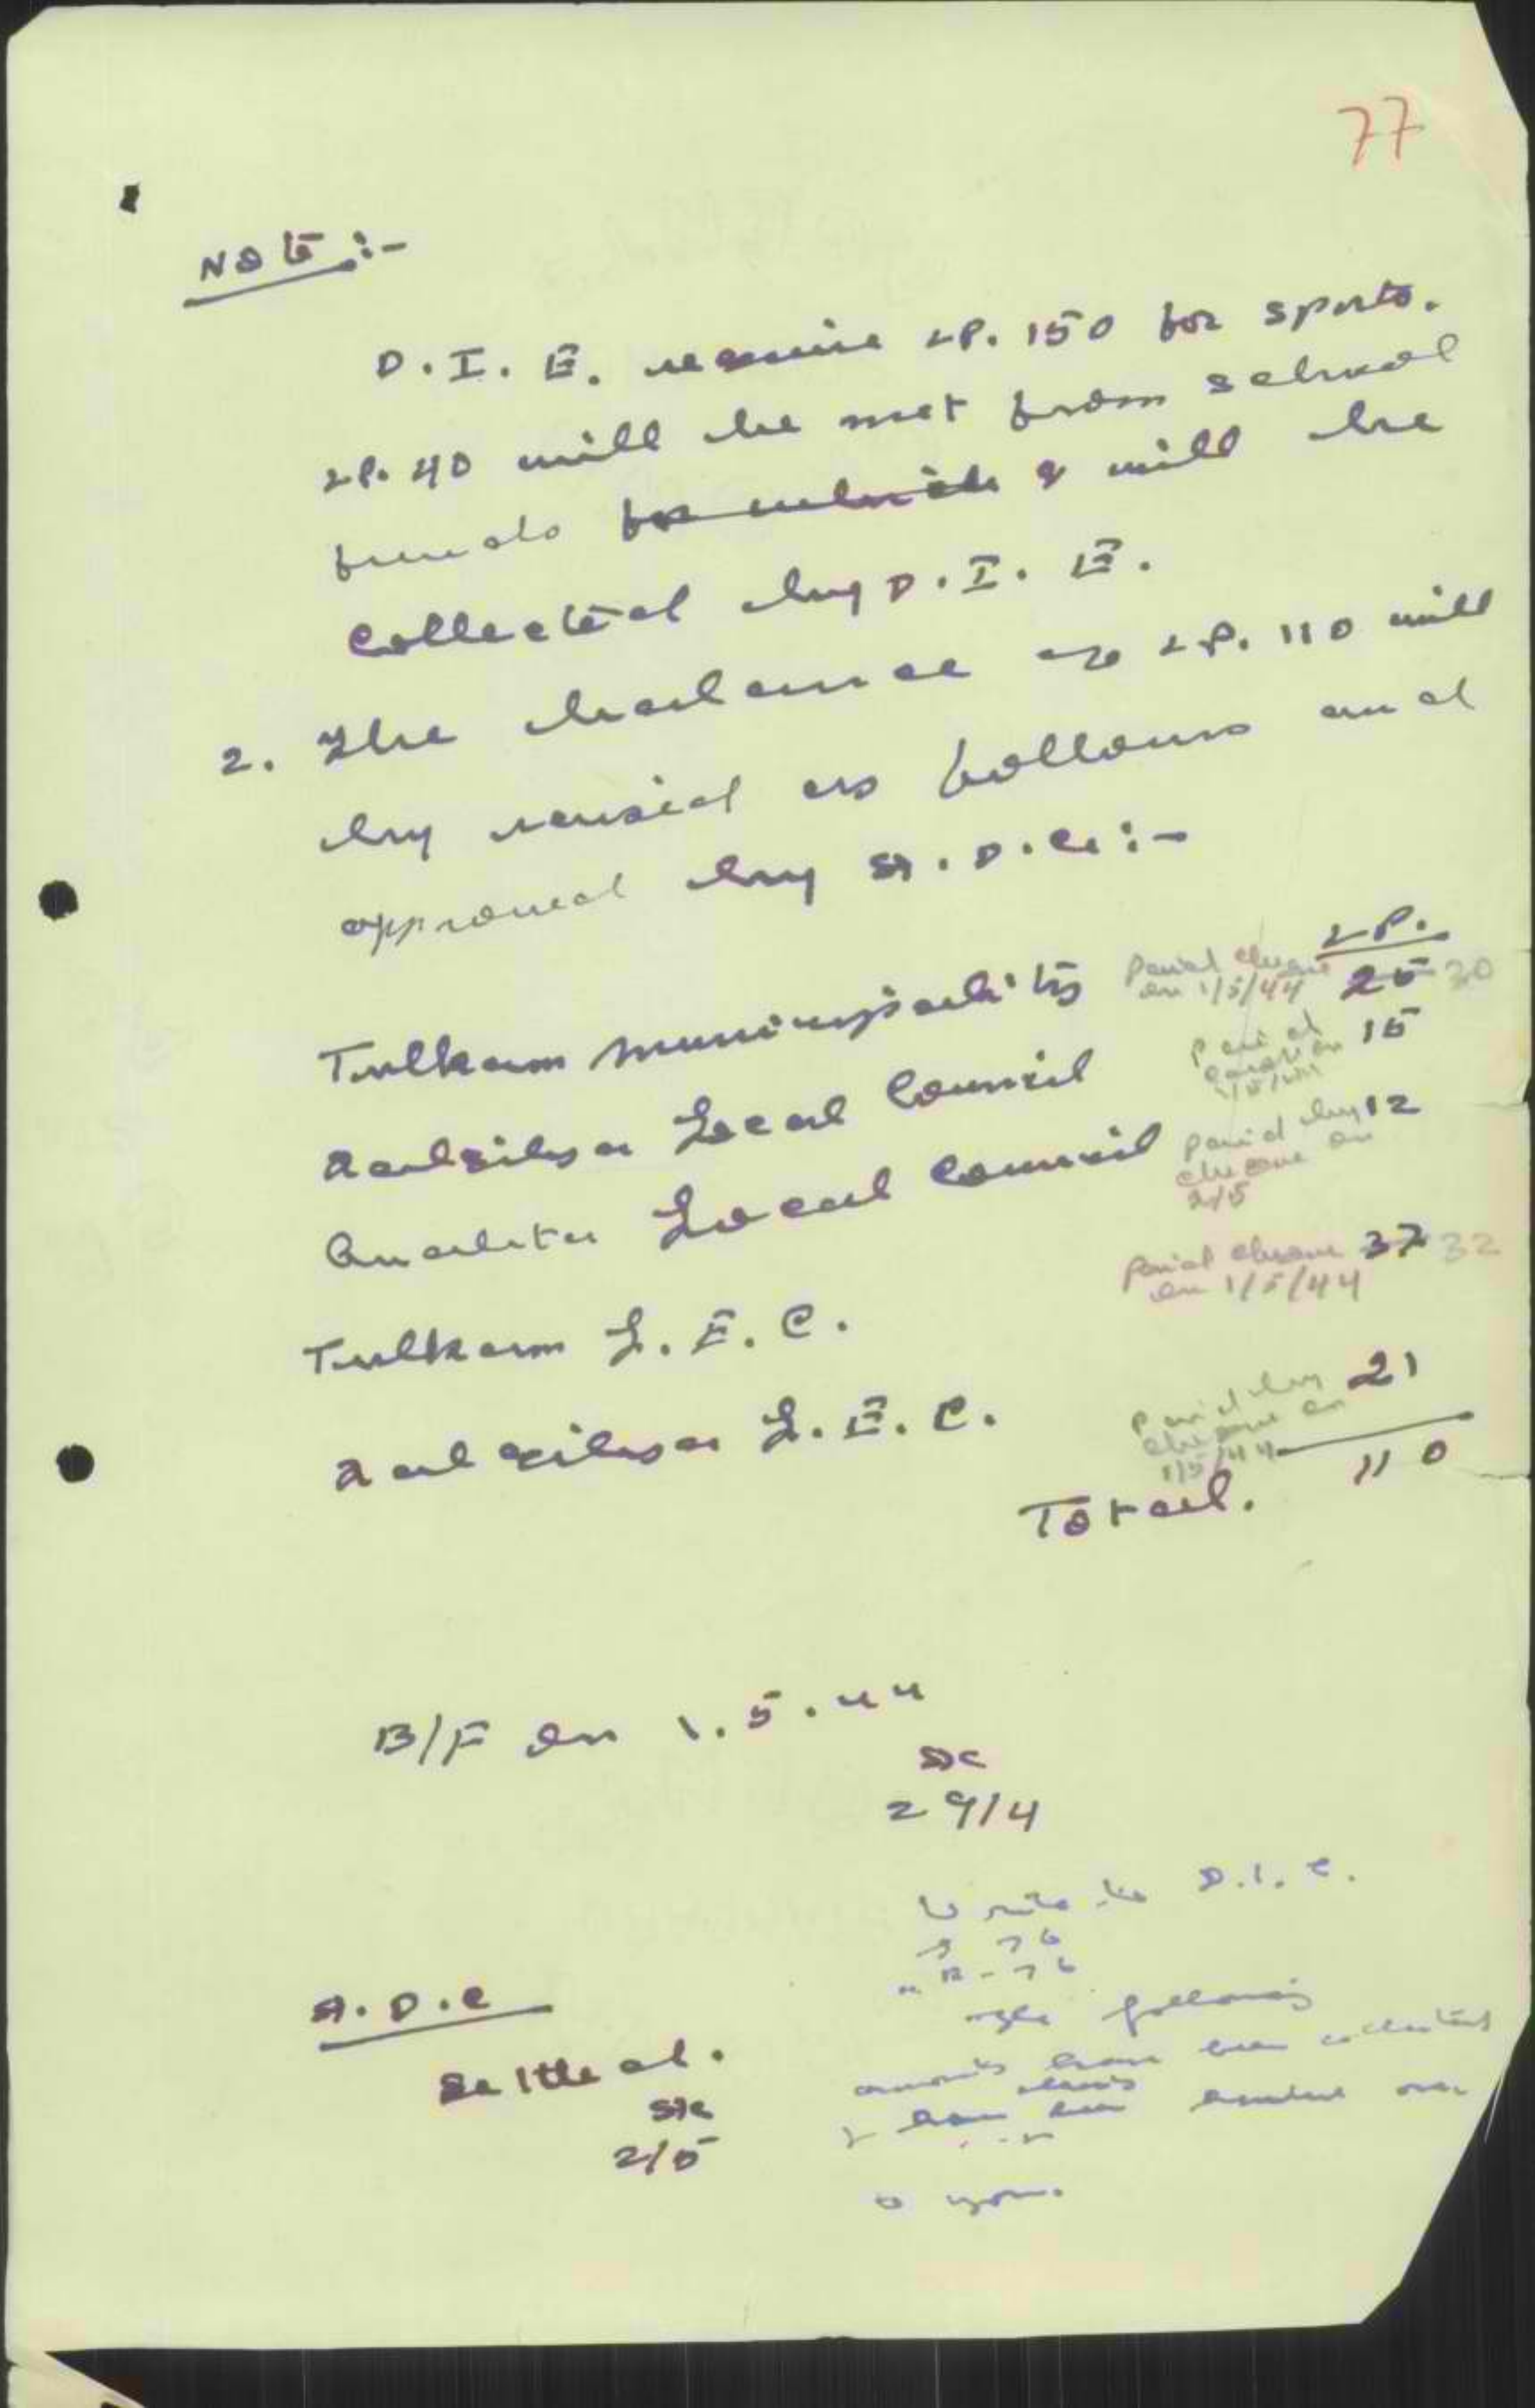 77
Note :-
D. I. E. require LP. 150 for sports.
LP. 40 will be met from school
funds for which & will be
collected by D. I. E.
2. The balance of LP. 110 will
by raised as follows and
approved by A. D. C. :-
LP.
Tulkarm Municipality Paid cheque on 1/5/44 25 30
Qalqilya Local Council Paid on 15
Anabta Local Council paid by cheque on 2/5 12
Tulkarm L. E. C. Paid cheque on 1/5/44 37 32
Qalqilya L. E. C. Paid by cheque on 1/5/44 21
Total. 110
B/F on 1.5.44
29/4
Write to D.I.E.
76
76
The following
A.D.C
amounts have been collected
Settled.
& have been handed over
2/5
to you.